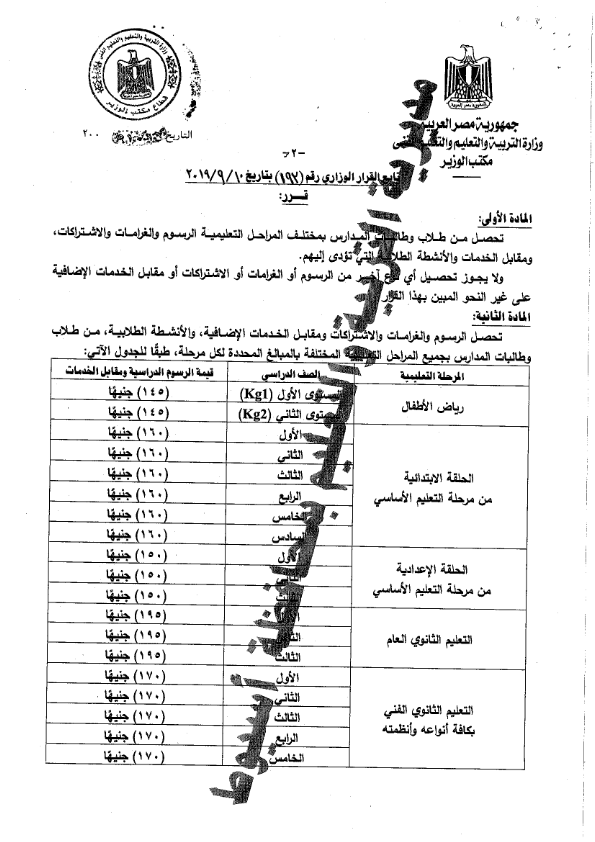 جمهورية مصر العربية
وزارة التربية والتعليم والتعليم الفنى
مكتب الوزير
وزارة التربية والتعليم والتعليم الفني
قطاع مكتب الوزير
التاريخ ٢٠٠
-٢-
تابع القرار الوزاري رقم (١٩٢) بتاريخ ٢٠١٩/٩/١٠
قـرر:
المادة الأولى:
تحصل من طلاب وطالبات المدارس بمختلف المراحل التعليمية الرسوم والغرامات والاشتراكات،
ومقابل الخدمات والأنشطة الطلابية التي تؤدى إليهم.
ولا يجوز تحصيل أي نوع آخر من الرسوم أو الغرامات أو الاشتراكات أو مقابل الخدمات الإضافية
على غير النحو المبين بهذا القرار
المادة الثانية:
تحصل الرسوم والغرامات والاشتراكات ومقابل الخدمات الإضافية، والأنشطة الطلابية، من طلاب
وطالبات المدارس بجميع المراحل التعليمية المختلفة بالمبالغ المحددة لكل مرحلة، طبقًا للجدول الآتي:
المرحلة التعليمية الصف الدراسي قيمة الرسوم الدراسية ومقابل الخدمات
رياض الأطفال
المستوى الأول (Kg1) (١٤٥) جنيهًا
المستوى الثاني (Kg2) (١٤٥) جنيهًا
الحلقة الابتدائية
من مرحلة التعليم الأساسي
الأول (١٦٠) جنيهًا
الثاني (١٦٠) جنيهًا
الثالث (١٦٠) جنيهًا
الرابع (١٦٠) جنيهًا
الخامس (١٦٠) جنيهًا
السادس (١٦٠) جنيهًا
الحلقة الإعدادية
من مرحلة التعليم الأساسي
الأول (١٥٠) جنيهًا
الثاني (١٥٠) جنيهًا
الثالث (١٥٠) جنيهًا
التعليم الثانوي العام
الأول (١٩٥) جنيهًا
الثاني (١٩٥) جنيهًا
الثالث (١٩٥) جنيهًا
التعليم الثانوي الفني
بكافة أنواعه وأنظمته
الأول (١٧٠) جنيهًا
الثاني (١٧٠) جنيهًا
الثالث (١٧٠) جنيهًا
الرابع (١٧٠) جنيهًا
الخامس (١٧٠) جنيهًا
مديرية التربية والتعليم بمحافظة أسيوط